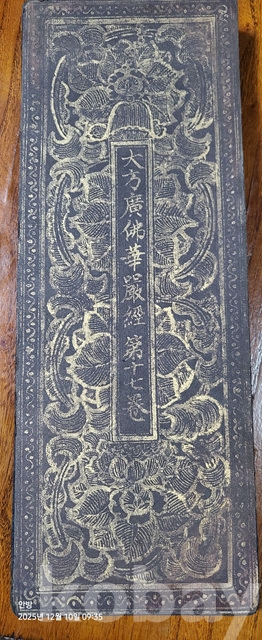 大方廣佛華嚴經 第十七卷
안방
2025년 12월 10일 09:35